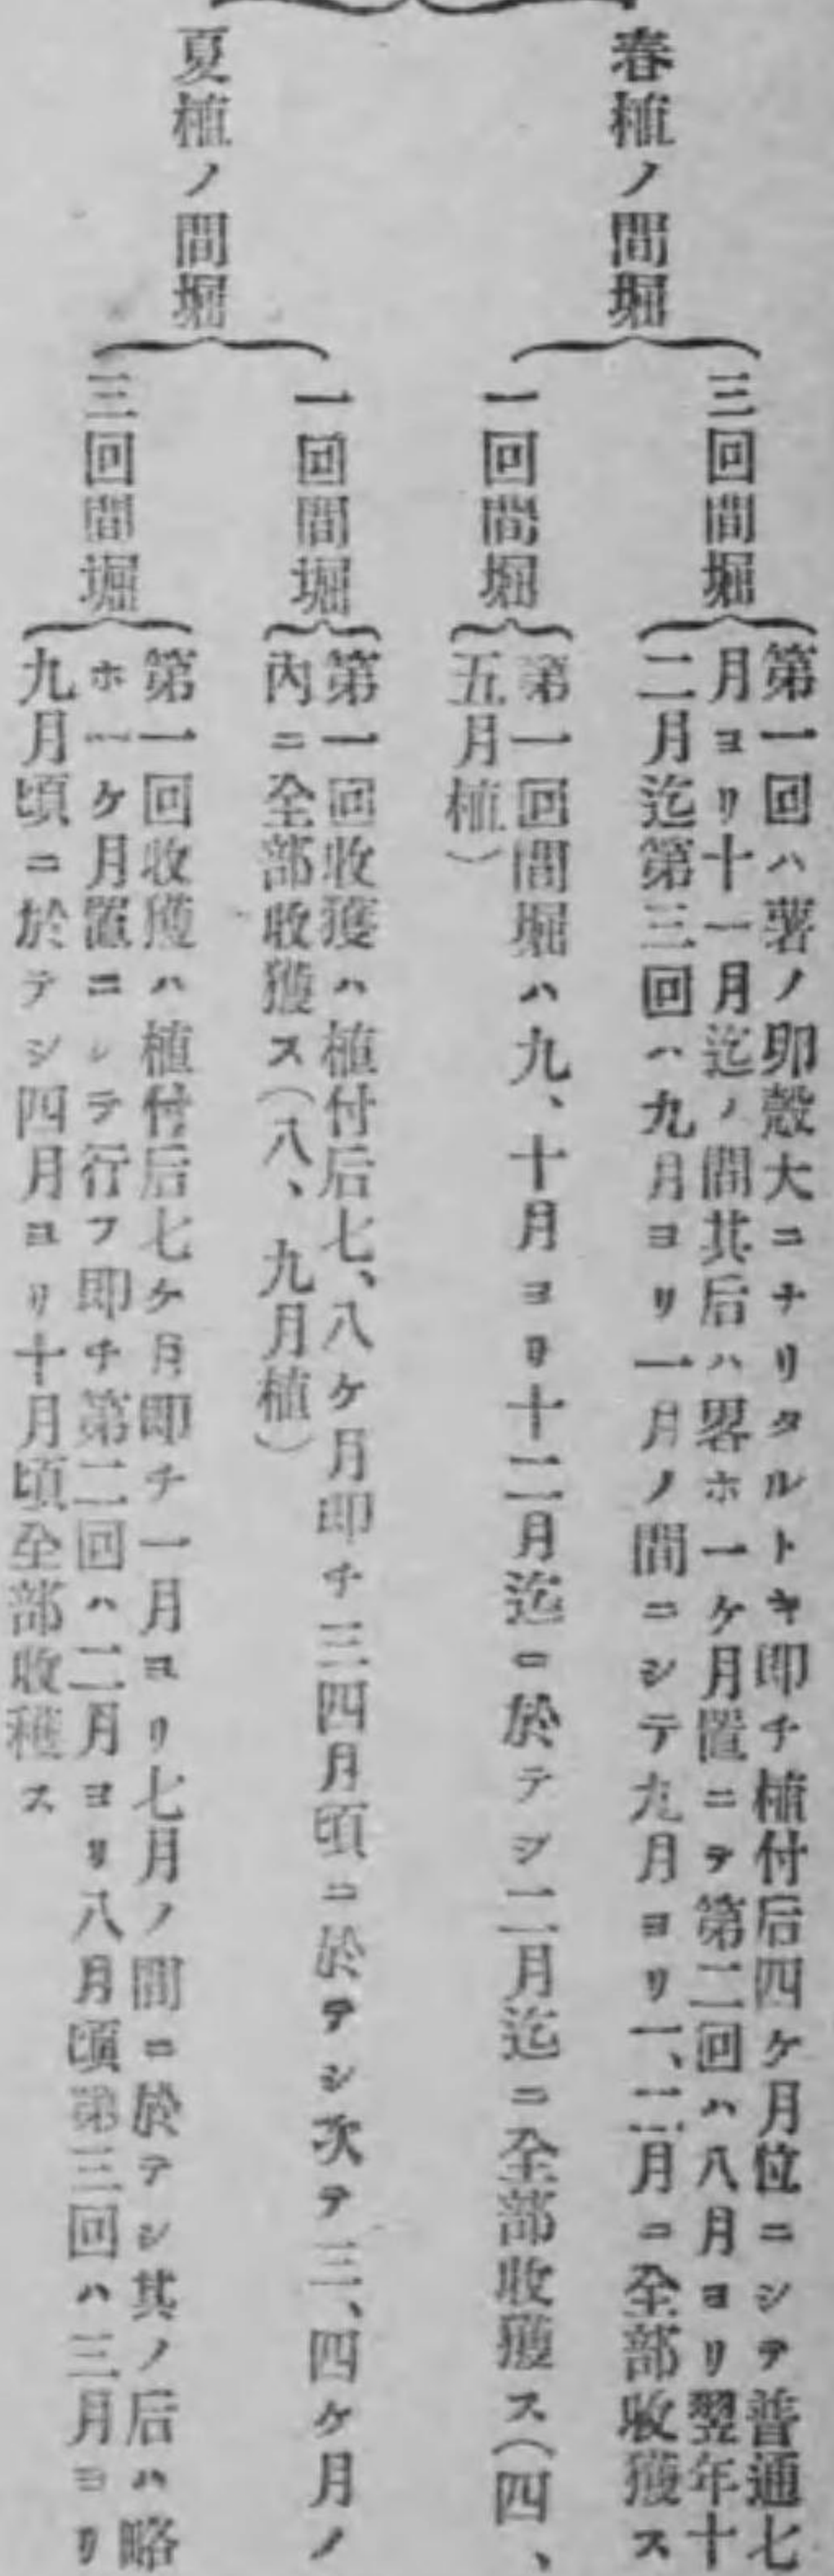 春植ノ間堀
三回間堀
第一回ハ薯ノ卵殻大ニナリタルトキ即チ植付后四ケ月位ニシテ普通七
月ヨリ十一月迄ノ間其后ハ畧ホ一ケ月置ニテ第二回ハ八月ヨリ翌年十
二月迄第三回ハ九月ヨリ一月ノ間ニシテ九月ヨリ一、二月ニ全部收獲ス
一回間堀
第一回間堀ハ九、十月ヨリ十二月迄ニ於テシ二月迄ニ全部收獲ス(四、
五月植)
夏植ノ間堀
一回間堀
第一回收獲ハ植付后七、八ケ月即チ三四月頃ニ於テシ次テ三、四ケ月ノ
內ニ全部收獲ス(八、九月植)
三回間堀
第一回收獲ハ植付后七ケ月即チ一月ヨリ七月ノ間ニ於テシ其ノ后ハ略
ホ一ケ月置ニシテ行フ即チ第二回ハ二月ヨリ八月頃第三回ハ三月ヨリ
九月頃ニ於テシ四月ヨリ十月頃全部收穫ス